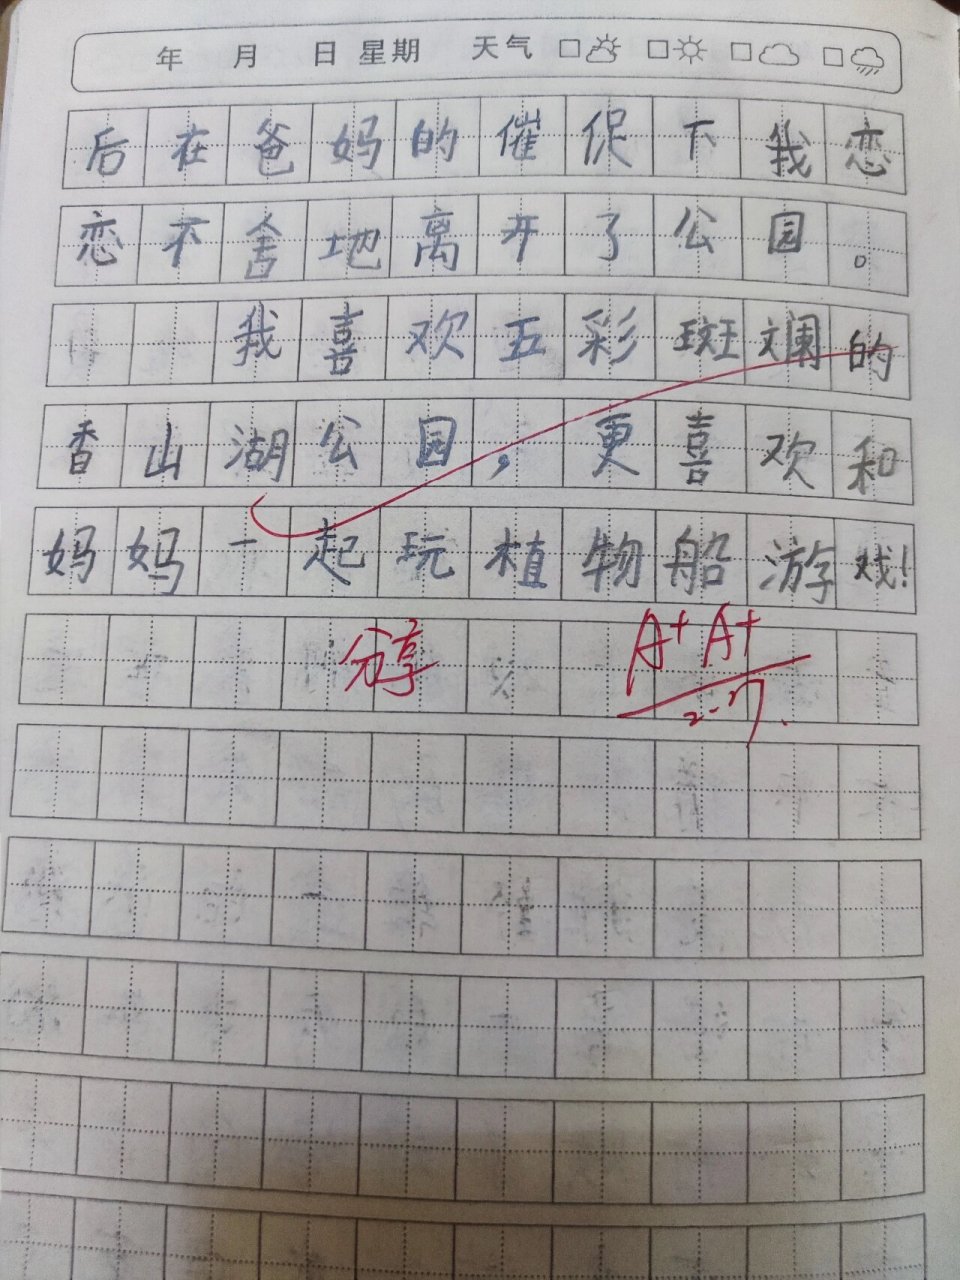 年 月 日 星期 天气
后在爸妈的催促下我恋
恋不舍地离开了公园。
我喜欢五彩斑斓的
香山湖公园，更喜欢和
妈妈一起玩植物船游戏!
分享 A+ A+